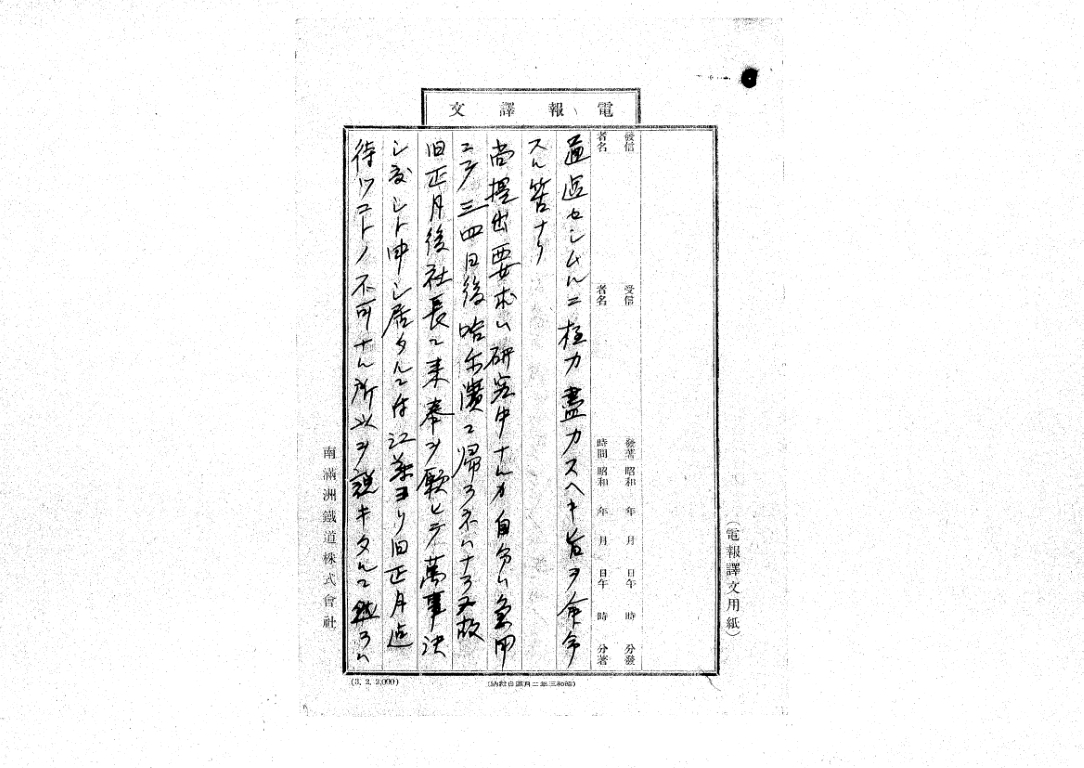 電報譯文
（電報譯文用紙）
發信者名
受信者名
發著時間 昭和 年 月 日午 時 分發
昭和 年 月 日午 時 分著
セシムルニ極力盡力スヘキ旨ヲ命令
スル筈ナリ
尚提出要求ハ研究中ナルカ自分ハ急用
ニテ三四日後哈尓濱ニ帰ラネハナラヌ故
旧正月後社長ニ来奉ヲ願ヒテ萬事決
シ度シト申シ居タルニ付江藤ヨリ旧正月迄
待ツコトノ不可ナル所以ヲ説キタルニ然ラハ
南滿洲鐵道株式會社
(3. 2. 2,000)